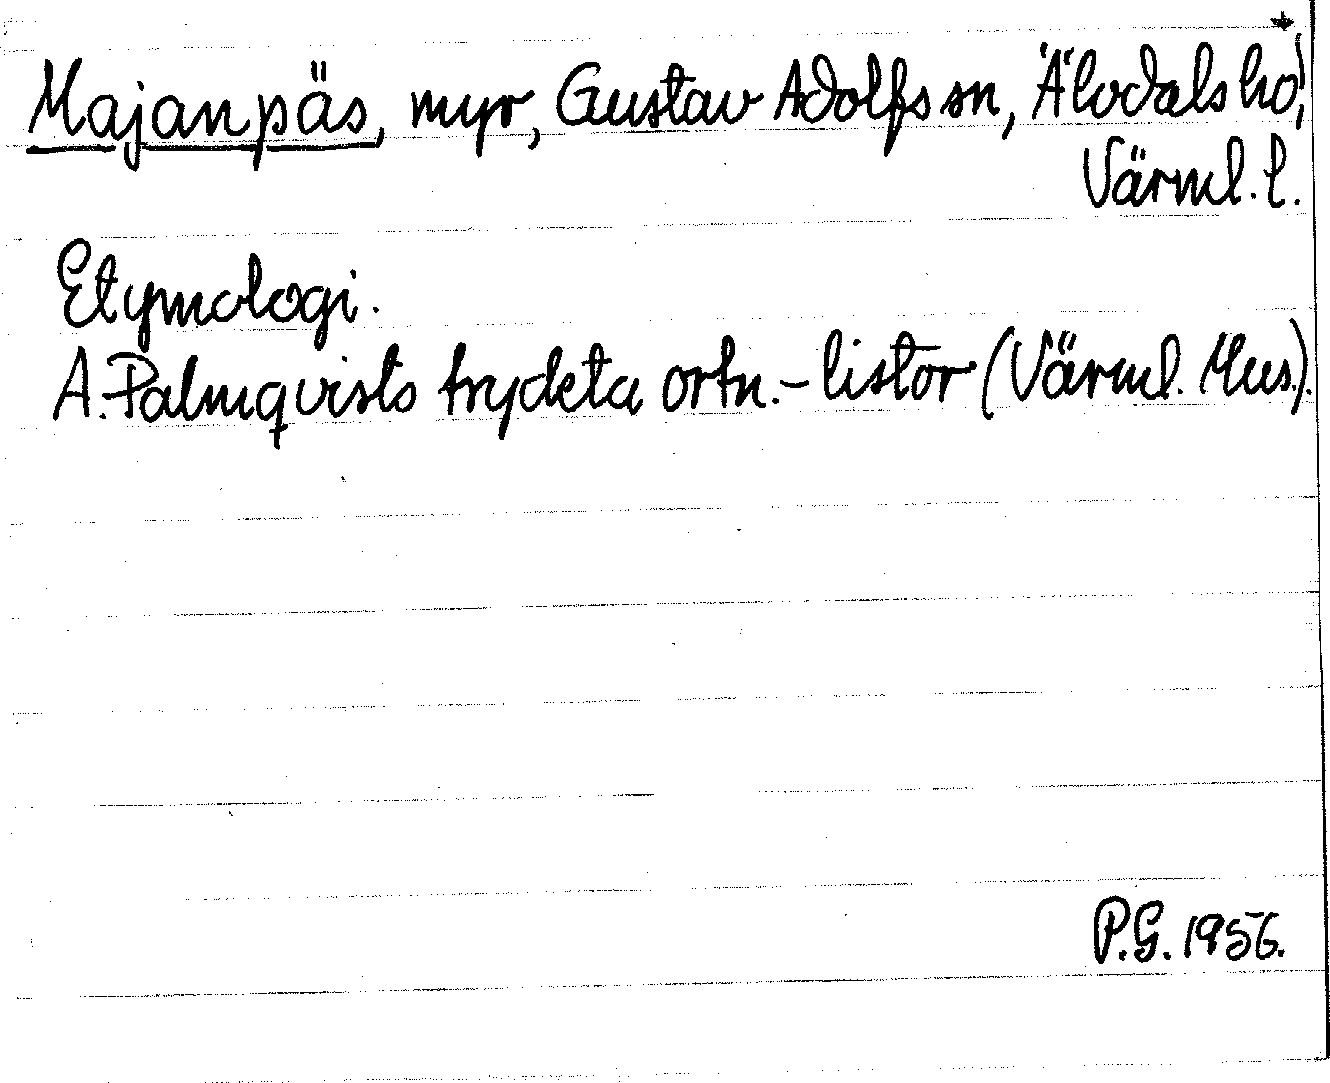 Majanpäs, myr, Gustav Adolfs sn, Älvdals hd,
Värml. l.
Etymologi.
A. Palmqvists tryckta ortn.-listor (Värml. Mus.).
P.G. 1956.